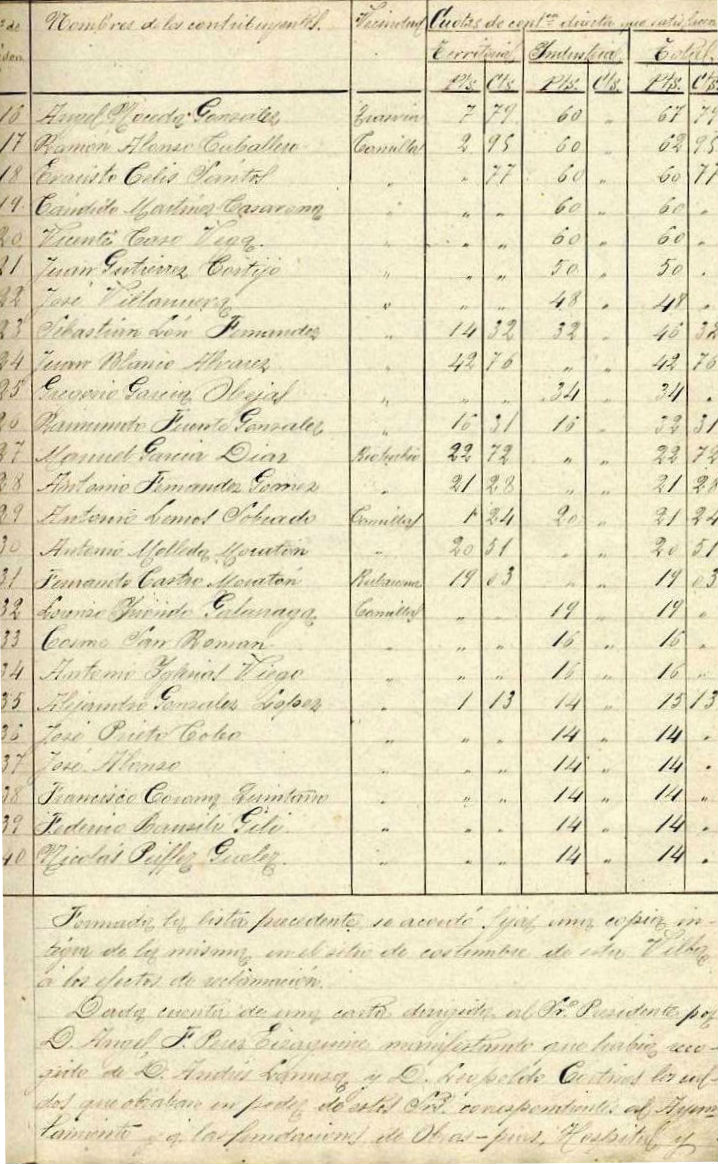 Nombres de los contribuyentes. Vecindad Cuotas de conton directa que satisfacen
Territorial Industrial Total
Pts. Cts. Pts. Cts. Pts. Cts.
16 Angel Gonzalez 7 79 60 " 67 79
17 Ramón Alonso Caballero Comillas 2 95 60 " 62 95
18 Evaristo Celis Santos " " 77 60 " 60 77
19 Cándido Martinez Casarona " " " 60 " 60 "
20 Vicente Caso Vega " " " 60 " 60 "
21 Juan Gutierrez Cortijo " " " 50 " 50 "
22 José Villanueva " " " 48 " 48 "
23 Sebastián León Fernandez " 14 32 32 " 46 32
24 Juan Blanco Alvarez " 42 76 " " 42 76
25 Gregorio Garcia " " " 34 " 34 "
26 Raimundo Fuente Gonzalez " 16 31 16 " 32 31
27 Manuel Garcia Diaz 22 72 " " 22 72
28 Antonio Fernandez Gomez " 21 28 " " 21 28
29 Antonio Lemos Sobrado Comillas 1 24 20 " 21 24
30 Antonio Molleda Moratón " 20 51 " " 20 51
31 Fernando Castro Moratón 19 03 " " 19 03
32 Lorenzo Galarraga Comillas " " 19 " 19 "
33 Cosme San Roman " " " 16 " 16 "
34 Antonio Iglesias Viego " " " 16 " 16 "
35 Alejandro Gonzalez Lopez " 1 13 14 " 15 13
36 José Prieto Cobo " " " 14 " 14 "
37 José Alonso " " " 14 " 14 "
38 Francisco Quintana " " " 14 " 14 "
39 Federico Gili " " " 14 " 14 "
40 Nicolás " " " 14 " 14 "
Formada la lista precedente se acordó fijar una copia in-
tegra de la misma en el sitio de costumbre de esta Villa
á los efectos de reclamación.
Dada cuenta de una carta dirigida al Sr. Presidente por
D. Angel F. Perez manifestando que habia reco-
gido de D. Andres y D. Leopoldo los sal-
dos que obraban en poder de estos Sres. correspondientes al Ayun-
tamiento y a las fundaciones de Obras-pias, Hospital y